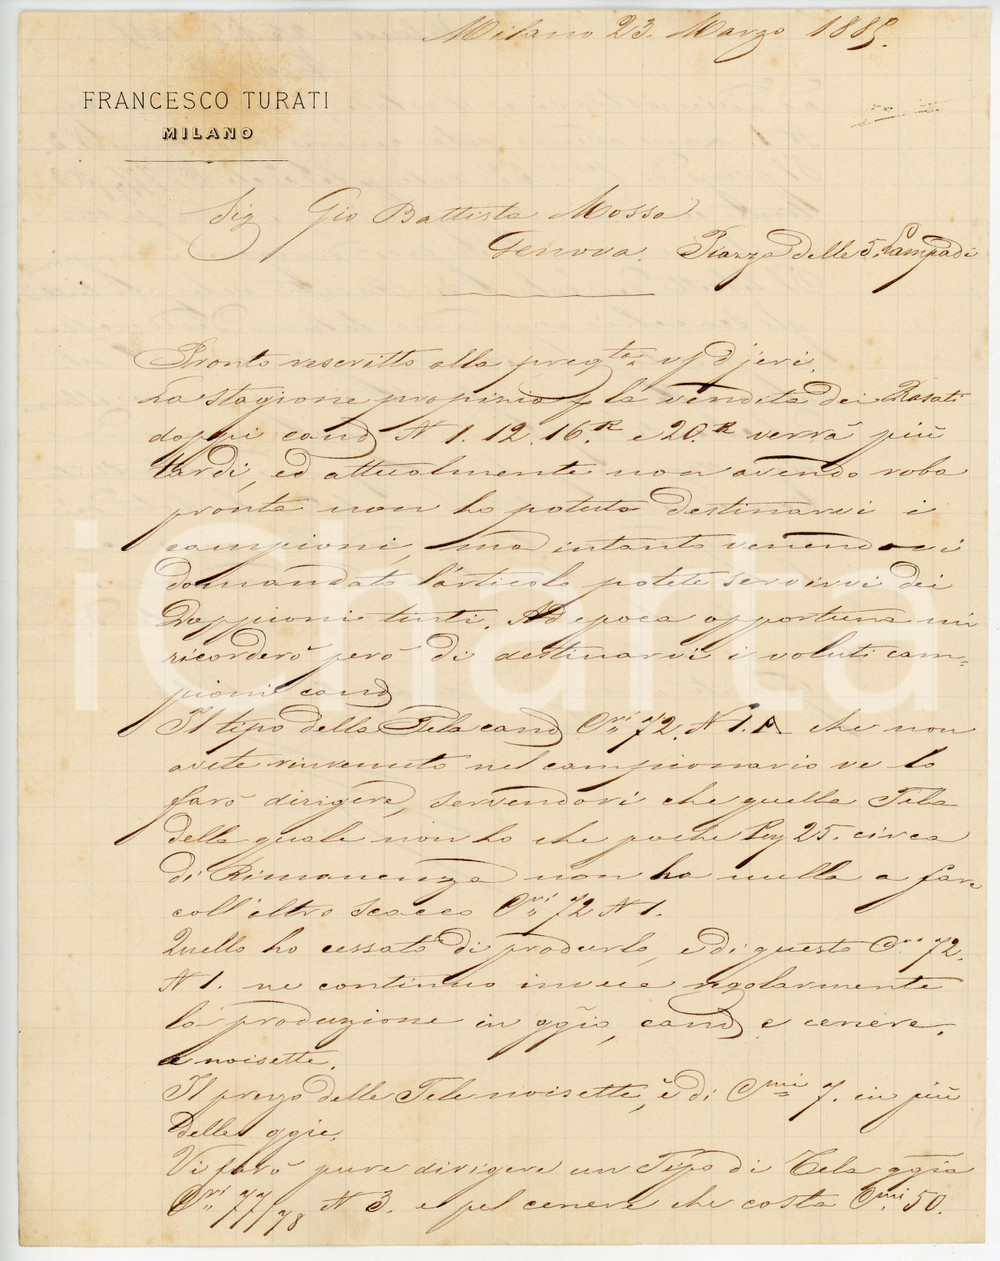 Milano 23. Marzo 1885.
FRANCESCO TURATI
MILANO
Sig Gio Battista Mossa
Genova. Piazza delle 5. Lampadi
Pronto riscritto alla preg.ta di jeri.
La stagione propizia p la vendita dei Rasati
doppi cand N 1. 12. 16.R e 20.R verrà più
tardi, ed attualmente non avendo roba
pronta non ho potuto destinarvi i
campioni, ma intanto venendovi
domandato l'articolo potete servirvi dei
Doppioni tinti. Ad epoca opportuna mi
ricorderò però di destinarvi i voluti cam=
pioni cand
Il tipo della Tela cand C.ri 72. N 1.A che non
avete rinvenuto nel campionario ve lo
farò dirigere, servendovi che quella Tela
della quale non ho che poche 25. circa
di Rimanenza non ha nulla a fare
coll'altro scacco C.ri 72 N 1.
Quello ho cessato di produrlo, e di questo C.ri 72.
N 1. ne continuo invece regolarmente
la produzione in ggio, cand e cenere,
e noisette.
Il prezzo delle Tele noisette, è di C.mi 7. in più
delle ggie.
Vi farò pure dirigere un Tipo di Tela ggia
C.ri 77/78 N 3. e pel cenere che costa C.mi 50.
iCharta